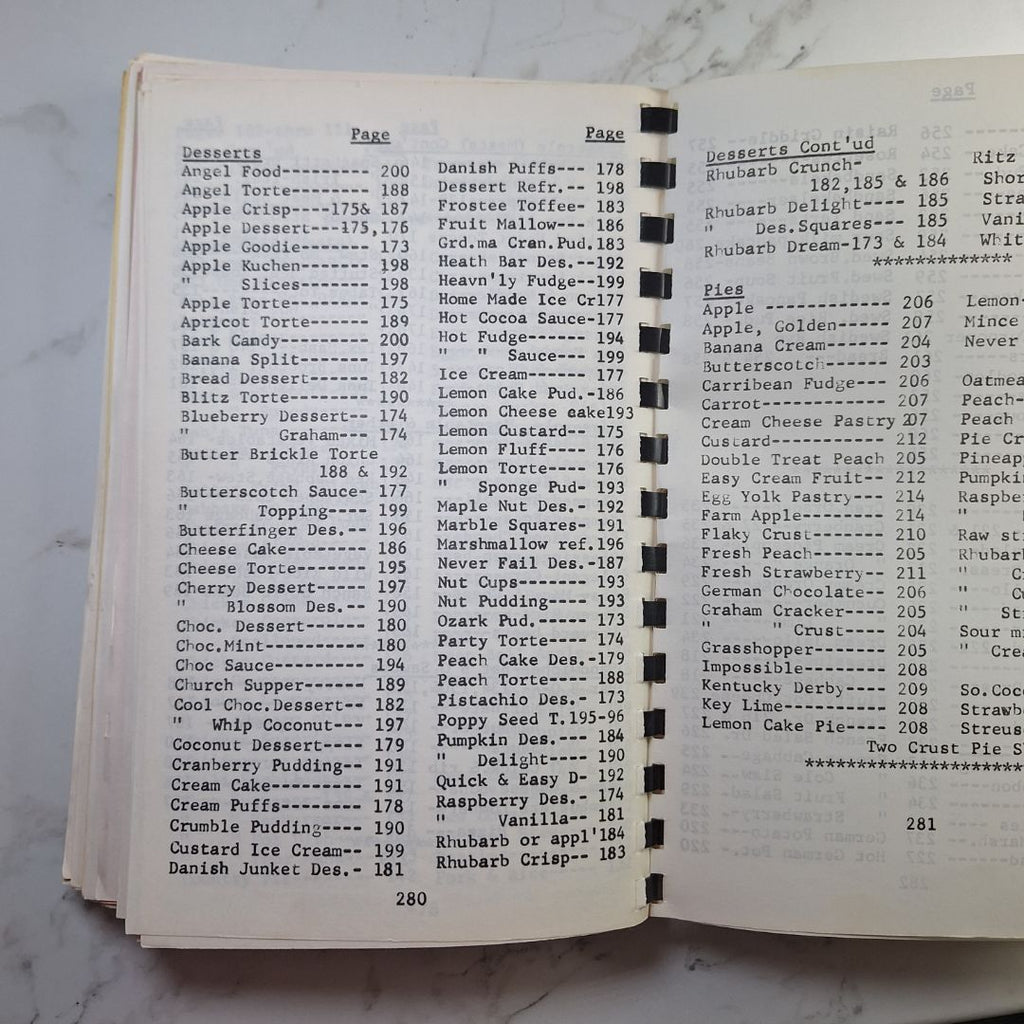 Page
Desserts
Angel Food--------- 200
Angel Torte-------- 188
Apple Crisp----175& 187
Apple Dessert---175,176
Apple Goodie------- 173
Apple Kuchen------- 198
" Slices------- 198
Apple Torte-------- 175
Apricot Torte------ 189
Bark Candy--------- 200
Banana Split------- 197
Bread Dessert------ 182
Blitz Torte-------- 190
Blueberry Dessert-- 174
" Graham--- 174
Butter Brickle Torte
188 & 192
Butterscotch Sauce- 177
" Topping---- 199
Butterfinger Des.-- 196
Cheese Cake-------- 186
Cheese Torte------- 195
Cherry Dessert----- 197
" Blossom Des.-- 190
Choc. Dessert------ 180
Choc.Mint---------- 180
Choc Sauce--------- 194
Church Supper------ 189
Cool Choc.Dessert-- 182
" Whip Coconut--- 197
Coconut Dessert---- 179
Cranberry Pudding-- 191
Cream Cake--------- 191
Cream Puffs-------- 178
Crumble Pudding---- 190
Custard Ice Cream-- 199
Danish Junket Des.- 181
Page
Danish Puffs--- 178
Dessert Refr.-- 198
Frostee Toffee- 183
Fruit Mallow--- 186
Grd.ma Cran.Pud.183
Heath Bar Des.--192
Heavn'ly Fudge--199
Home Made Ice Cr177
Hot Cocoa Sauce-177
Hot Fudge------ 194
" " Sauce--- 199
Ice Cream------ 177
Lemon Cake Pud.-186
Lemon Cheese cake193
Lemon Custard-- 175
Lemon Fluff---- 176
Lemon Torte---- 176
" Sponge Pud- 193
Maple Nut Des.- 192
Marble Squares- 191
Marshmallow ref.196
Never Fail Des.-187
Nut Cups------- 193
Nut Pudding---- 193
Ozark Pud.----- 173
Party Torte---- 174
Peach Cake Des.-179
Peach Torte---- 188
Pistachio Des.- 173
Poppy Seed T.195-96
Pumpkin Des.--- 184
" Delight---- 190
Quick & Easy D- 192
Raspberry Des.- 174
" Vanilla-- 181
Rhubarb or appl'184
Rhubarb Crisp-- 183
280
Desserts Cont'ud
Rhubarb Crunch-
182,185 & 186
Rhubarb Delight---- 185
" Des.Squares--- 185
Rhubarb Dream-173 & 184
Ritz
Shor
Stra
Vani
Whit
*************
Pies
Apple ------------- 206
Apple, Golden------ 207
Banana Cream------- 204
Butterscotch------- 203
Carribean Fudge---- 206
Carrot------------- 207
Cream Cheese Pastry 207
Custard------------ 212
Double Treat Peach 205
Easy Cream Fruit-- 212
Egg Yolk Pastry--- 214
Farm Apple-------- 214
Flaky Crust------- 210
Fresh Peach------- 205
Fresh Strawberry-- 211
German Chocolate-- 206
Graham Cracker---- 205
" " Crust---- 204
Grasshopper------- 205
Impossible-------- 208
Kentucky Derby---- 209
Key Lime---------- 208
Lemon Cake Pie---- 208
Lemon-
Mince
Never
Oatmea
Peach-
Peach
Pie Cr
Pineap
Pumpki
Raspbe
" "
Raw st
Rhubar
" C
" Cu
" St
Sour m
" Crea
So.Coc
Strawb
Streus
Two Crust Pie S
*********************
281